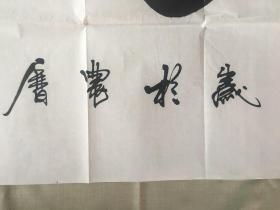 歲於農曆